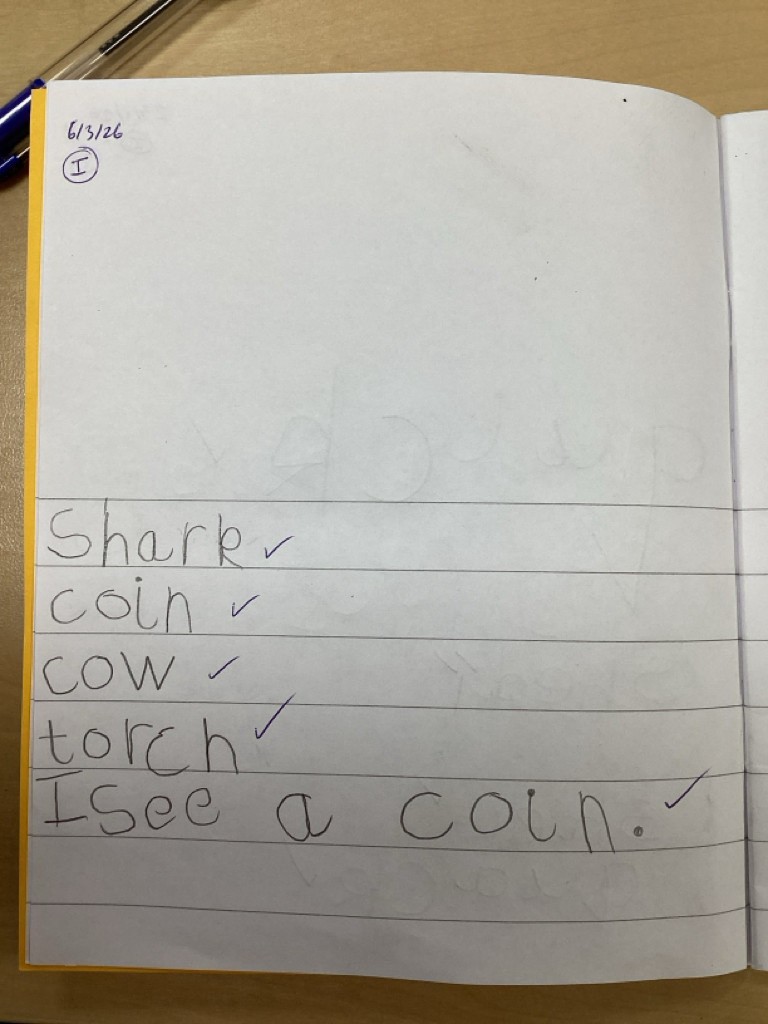 6/3/26
I
Shark
coin
cow
torch
I see a coin.